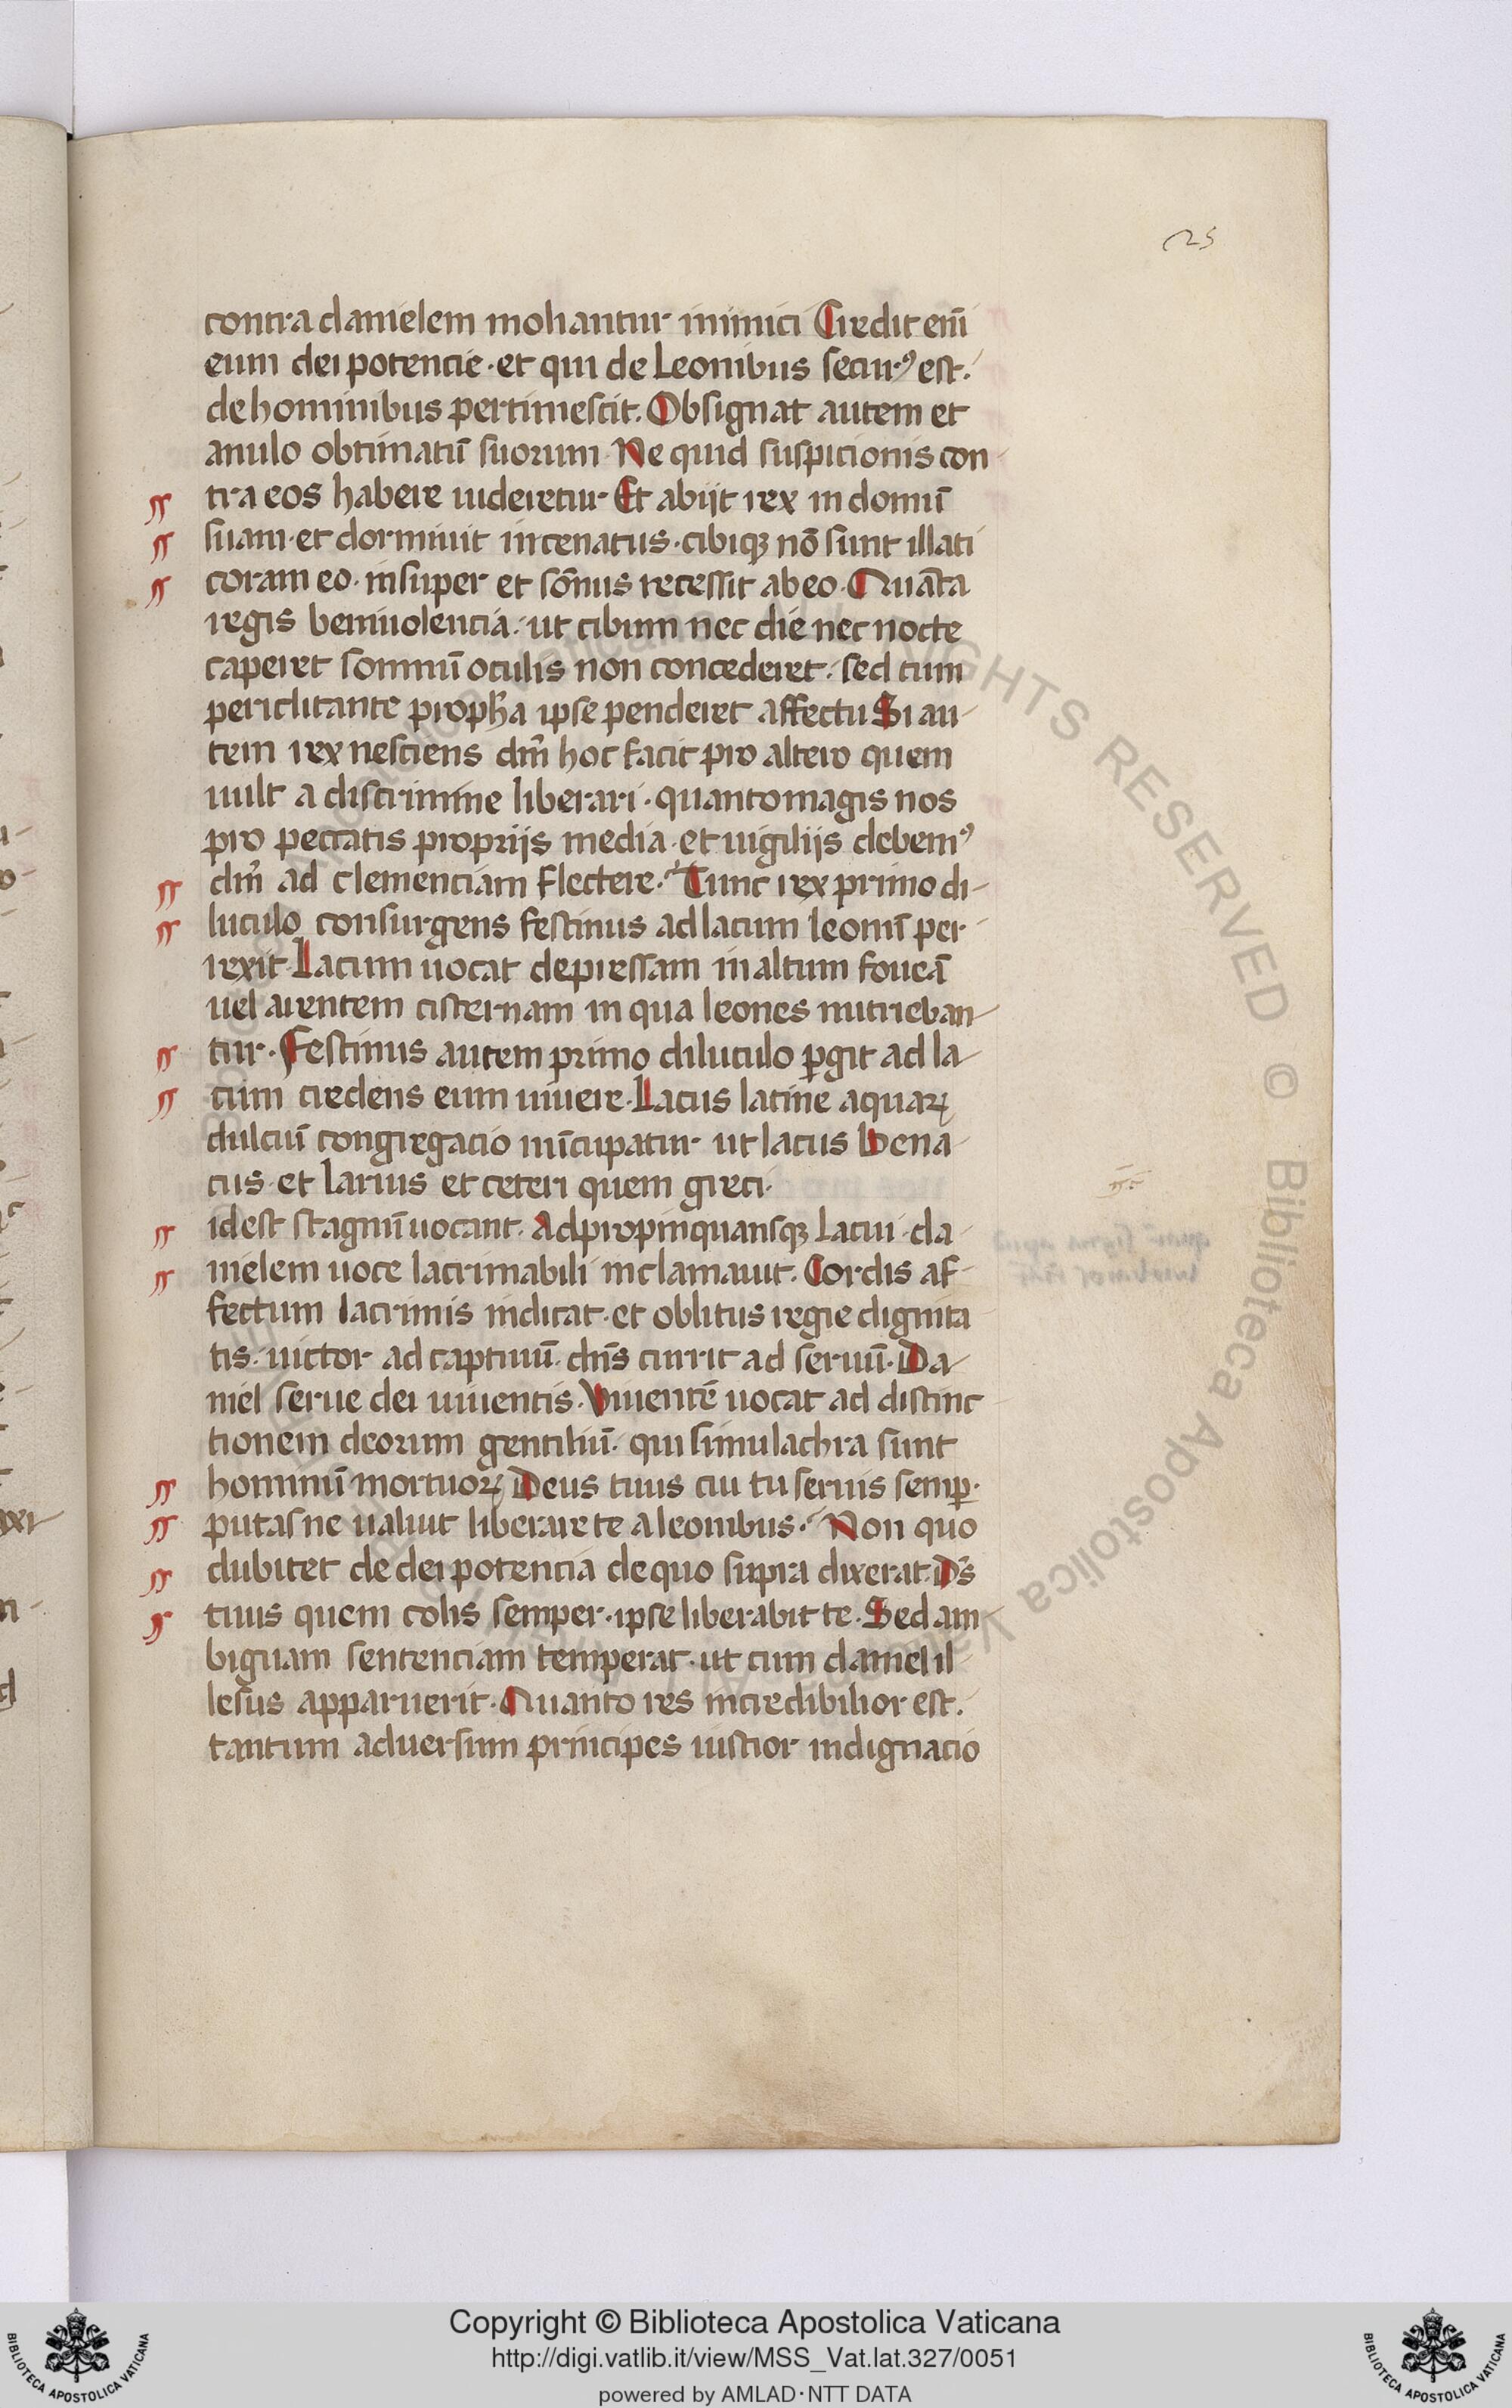 25
contra danielem moliantur inimici Credit em̄
eum dei potencie · et qui de leonibus securꝰ est.
de hominibus pertimescit. Obsignat autem et
anulo obtimatū suorum Ne quid suspicionis con
tra eos habere uideretur Et abijt rex in domū
suam · et dormiuit incenatus · cibiqꝫ nō sunt illati
coram eo · insuper et sōnus recessit ab eo · Quāta
regis beniuolencia · ut cibum nec die nec nocte
caperet somnū oculis non concederet · sed cum
periclitante proph̄a ipse penderet affectu Si au
tem rex nesciens dm̄ hoc facit pro altero quem
uult a discrimine liberari · quanto magis nos
pro peccatis proprijs media · et uigilijs debemꝰ
dm̄ ad clemenciam flectere · Tunc rex primo di-
luculo consurgens festinus ad lacum leonū per
rexit Lacum uocat depressam in altum foueā
uel arentem cisternam in qua leones nutrieban
tur · Festinus autem primo diluculo ꝑgit ad la
cum credens eum uiuere · Lacus latine aquaꝝ
dulciū congregacio nūcupatur ut lacus bena
cus · et larius et ceteri quem greci ·
idest stagnū uocant. Adpropinquansqꝫ lacui · da
nielem uoce lacrimabili inclamauit. Cordis af
fectum lacrimis indicat · et oblitus regie dignita
tis · uictor ad captiuū · dn̄s currit ad seruū · Da
niel serue dei uiuentis · Viuentē uocat ad distinc
tionem deorum gentiliū · qui simulachra sunt
hominū mortuoꝝ Deus tuus cui tu seruis semꝑ ·
putasne ualuit liberare te a leonibus · Non quo
dubitet de dei potencia de quo supra dixerat · Ds̄
tuus quem colis semper · ipse liberabit te · Sed am
biguam sentenciam temperat · ut cum daniel il
lesus apparuerit · Quanto res incredibilior est.
tantum aduersum principes iustior indignacio
Copyright © Biblioteca Apostolica Vaticana
http://digi.vatlib.it/view/MSS_Vat.lat.327/0051
powered by AMLAD·NTT DATA